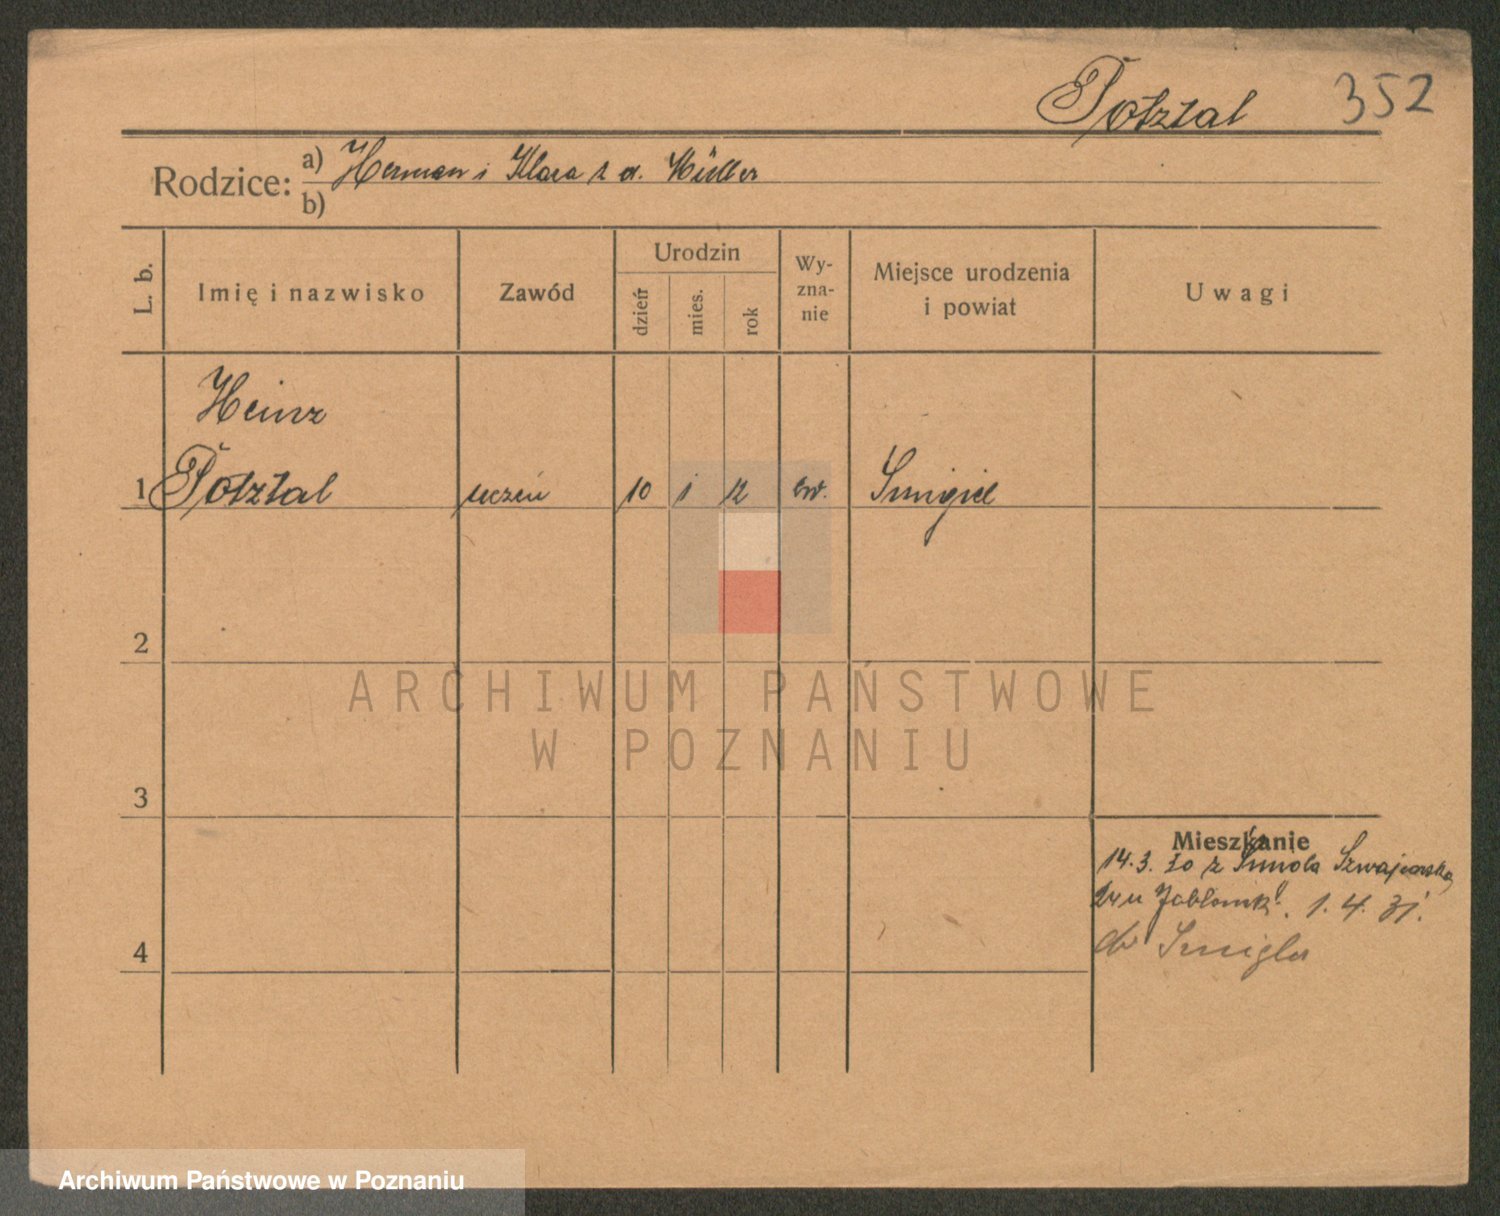 Potztal 352
Rodzice: a) Herman i Klara z d. Müller
b)
L. b.
Imię i nazwisko
Zawód
Urodzin
dzień
mies.
rok
Wy-
zna-
nie
Miejsce urodzenia
i powiat
Uwagi
Heinz
1 Potztal uczeń 10 1 12 ew. Śmigiel
2
3
4
Mieszkanie
14.3. 30 z Śmigla Szwajcarska
u Jabłonski. 1. 4. 31.
do Śmigla
ARCHIWUM PAŃSTWOWE
W POZNANIU
Archiwum Państwowe w Poznaniu